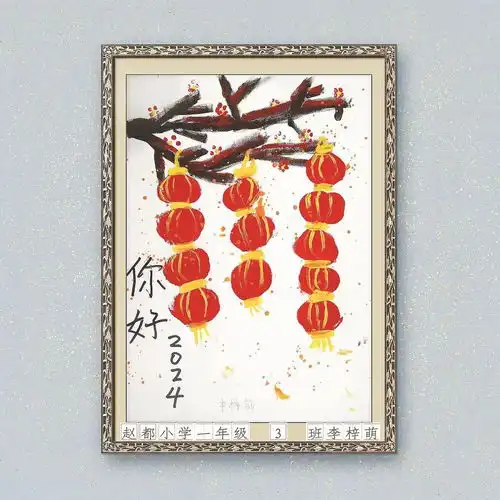 你好
2024
李梓萌
赵都小学一年级 3 班李梓萌